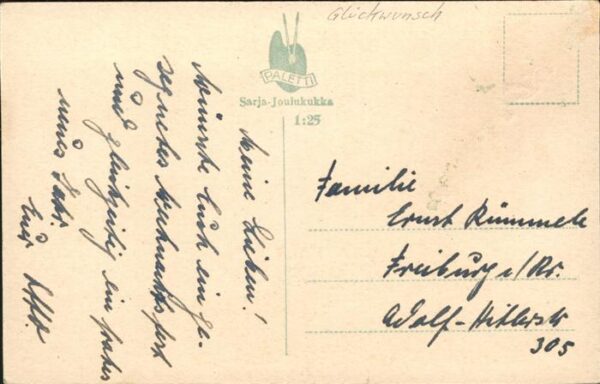 Glückwunsch
PALETTI
Sarja-Joulukukka
1:25
Meine Lieben!
Wünsche Euch ein ge-
segnetes Weihnachtsfest
und gleichzeitig ein frohes
neues Jahr.
Euer
Familie
Ernst Rümmele
Freiburg i/Br.
Adolf-Hitlerstr
305